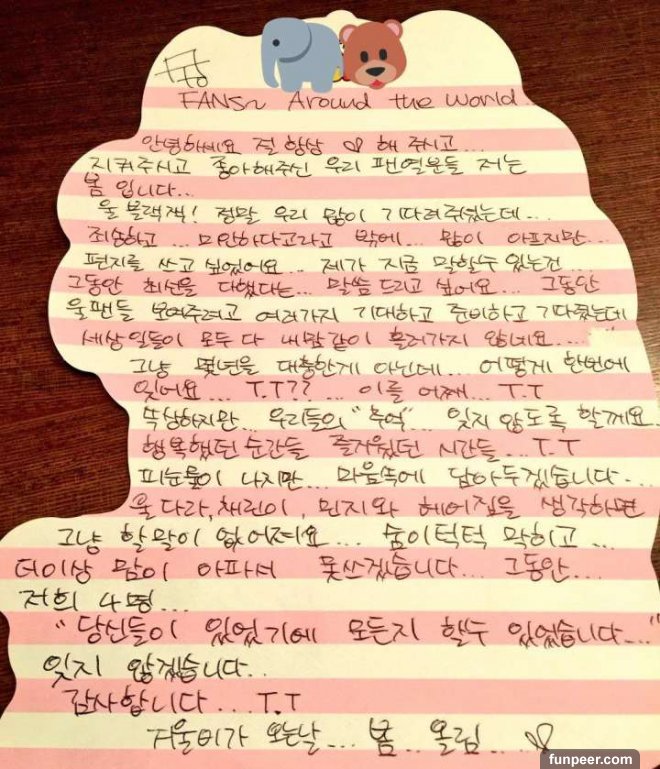 FANS~ Around the world..
안녕하세요 절 항상 ♡ 해 주시고...
지켜주시고 좋아해주신 우리 팬열분들 저는
봄 입니다...
울 블랙잭! 정말 우리 많이 기다려주셨는데...
죄송하고... 미안하다고라고 밖에... 많이 아프지만...
편지를 쓰고 싶었어요... 제가 지금 말할수 있는건...
그동안 최선을 다했다는... 말씀 드리고 싶어요... 그동안
울팬들 보여주려고 여러가지 기대하고 준비하고 기다렸는데
세상일들이 모두 다 내맘같이 흘러가지 않네요...
그냥 몇년을 대충한게 아닌데... 어떻게 한번에
잊어요... T.T?? ... 이를 어째... T.T
속상하지만... 우리들의 "추억".. 잊지 않도록 할께요..
행복했던 순간들 즐거웠던 시간들... T.T
피눈물이 나지만... 마음속에 담아두겠습니다...
울 다라, 채린이, 민지와 헤어짐을 생각하면
그냥 할말이 없어져요... 숨이턱턱 막히고...
더이상 맘이 아파서 못쓰겠습니다... 그동안...
저희 4명...
"당신들이 있었기에 모든지 할수 있었습니다..."
잊지 않겠습니다..
감사합니다... T.T
겨울비가 오는날... 봄.. 올림... ♡
funpeer.com